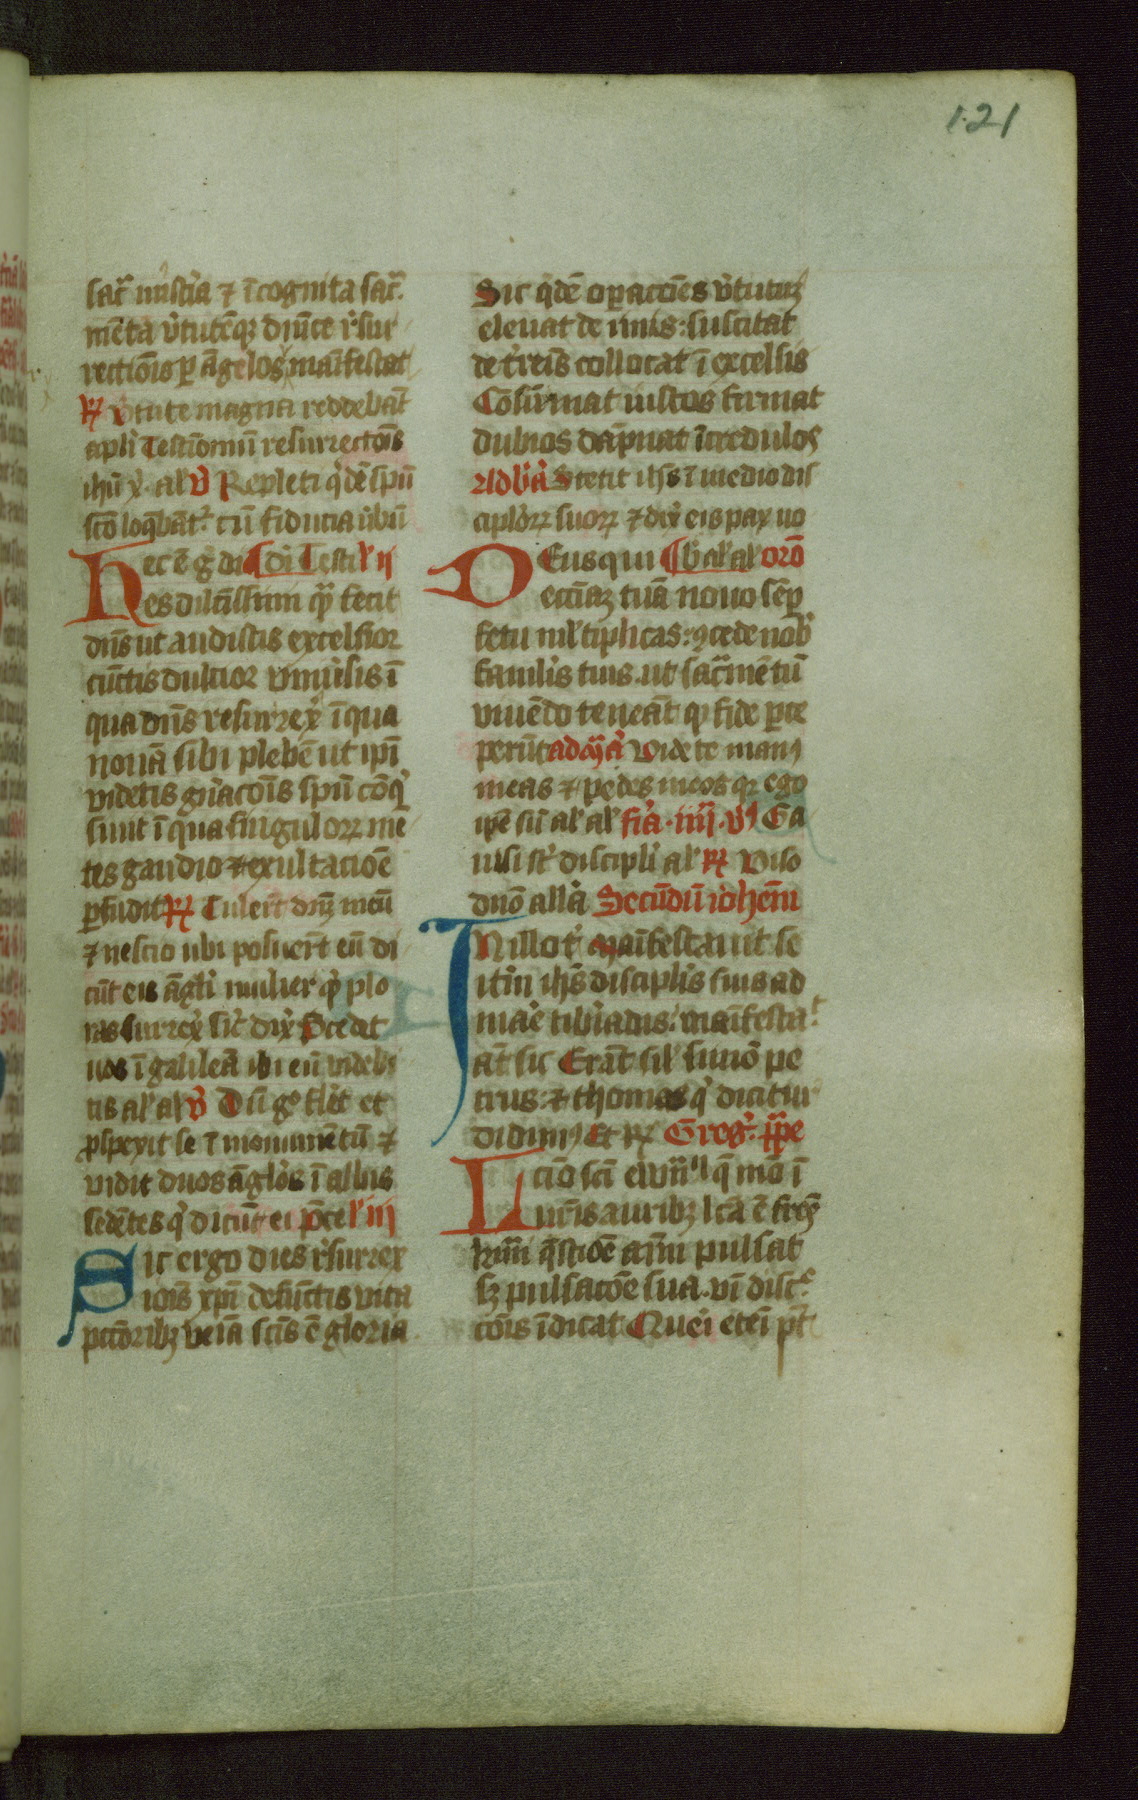 121
sac͛ miste͛ia ⁊ ı̄cognita sac͛
mēta v͛tutēqꝫ diuīe r͛sur
rectiōis ꝑ āgelos maīfestat
℟ v͛tute magna reddebāt
apl̄i Testiōmiū resurrectōis
ih̄u x͛ al͛ V̄ Repleti q̇dē spū
sc̄o loq̄bāt͛ cū fiducia v͛bū
Hec ē g̊ di
es dilc̄issimi qm̄ fecit
dn̄s ut audistis excelsior
cūctis dulcior vniu͛sis ī
qua dn̄s resurrex͛ īqua
nouā sibi plebē ut ip̄i
videtis gn̄acōis spū
sunt ī qua singuloꝝ mē
tes gaudio ⁊ exultacioē
ꝑfudit ℟ Tulert̄ dn̄m meū
⁊ nescio ubi posuert̄ eū di
cūt eis āgl̄i mulier qd̄ plo
ras surrex͛ sic͛ dix͛ p̄cedet
uos ī galileā ibi eū videbi
tis al͛ al͛ V̄ Dū g̊ flēt et
ꝓspexit se ī monumētū ⁊
vidit duos āglōs ī albis
sedētes q̇ dicūt ei l͛ iij
Sic ergo dies r͛surrex
iōis xp̄i defūctis vita
pctōribꝫ ueīa sc̄is ē gloria
Sic q̇dē operacōes v͛tutuꝫ
eleuat de imis: suscitat
de t͛reīs collocat ī excelsis
Cōfirmat iustos firmat
dubios dāpnat īcredulos
Ad b̄n̄ Stetit ih̄s ī medio dis
cipl̄oꝝ suoꝝ ⁊ dix͛ eis pax uo
DEus qui al͛ al͛ orō
ecc͛iaꝫ tuā nouo sēp
fetu ml͛tiplicas: ꝯcede nob̄
famul͛is tuis ut sac͛mētū
viuēdo teneāt qd̄ fide ꝑce
perūt ad mag̅ Videte man⁹
meas ⁊ pedes meos qꝛ ego
ip̄e sū al͛ al͛ fr̄ia iiij v̄s Ga
uisi sr̄ discipl̄i al͛ ℟ Viso
dn̄o all͛a Secūdū ioh̄em
IN illo t͛ Maīfestauit se
it͛m ih̄s discipl̄is suis ad
mare tib͛iadis: maīfesta
āt sic Erāt sil͛ simō pe
trus: ⁊ thomas q̇ dicitur
didim⁹ Et ℟ Greg͛ pp̄e
Lcīo sc̄i ew̄n̄ii q̄ mō ī
ur̄is auribꝫ lc̄a ē frēs
kr̄mi q̄stiōe aīm pulsat
sꝫ pulsatōe sua vī disc͛
cōis īdicat Queri etei pt̄